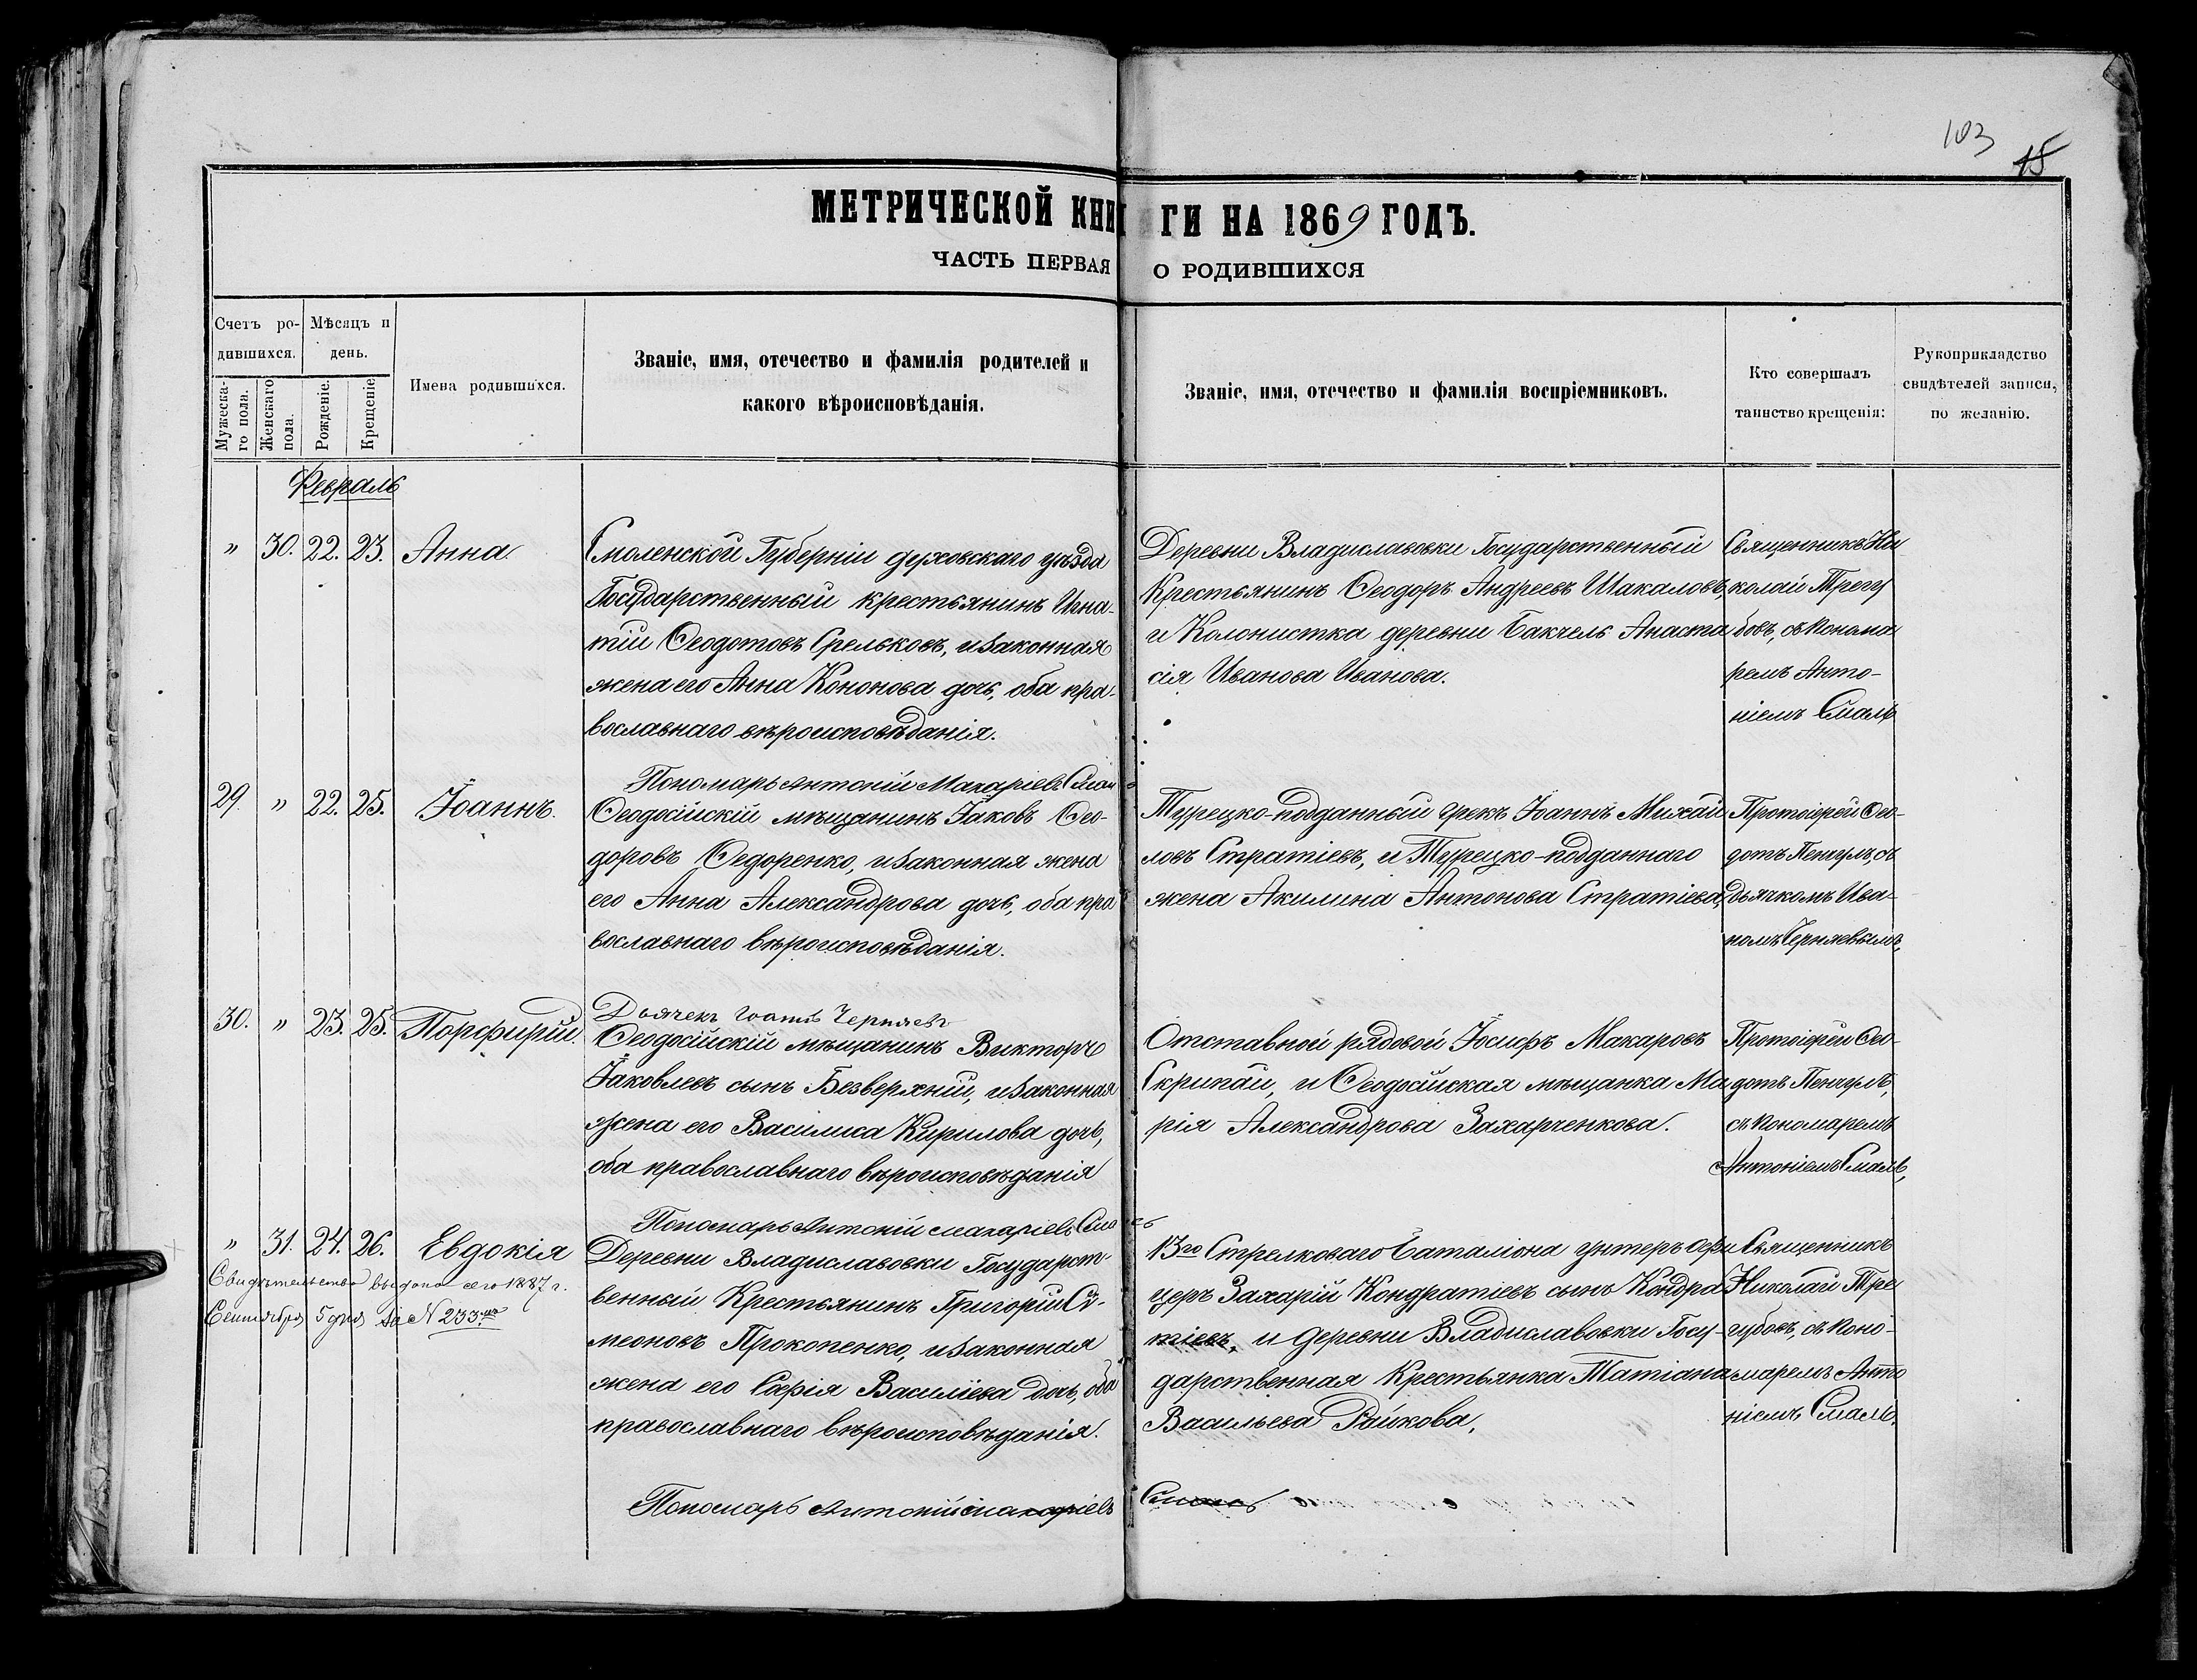 103
15
МЕТРИЧЕСКОЙ КНИГИ НА 1869 ГОДЪ.
ЧАСТЬ ПЕРВАЯ О РОДИВШИХСЯ
Счетъ ро-
дившихся.
Мужеска-
го пола.
Женскаго
пола.
Мѣсяцъ и
день.
Рожденіе.
Крещеніе
Имена родившихся.
Званіе, имя, отечество и фамилія родителей и
какого вѣроисповѣданія.
Званіе, имя, отечество и фамилія воспріемниковъ.
Кто совершалъ
таинство крещенія:
Рукоприкладство
свидѣтелей записи,
по желанію.
Февраль
" 30. 22. 23. Анна.
Смоленской Губерніи духовскаго уѣзда
Государственный крестьянинъ Игна-
тій Ѳеодотовъ Срельковъ, и законная
жена его Анна Кононова дочь, оба пра-
вославнаго вѣроисповѣданія.
Деревни Владиславовки Государственный
Крестьянинъ Ѳеодоръ Андреевъ Шакаловъ,
и Колонистка деревни Бакчель Анаста
сія Иванова Иванова.
Священникъ Ни
колай Трегу
бовъ, съ Понома
ремъ Анто-
ніемъ Смаль
Пономарь Антоній Макаріевъ
29. " 22. 25. Іоаннъ.
Ѳеодосійскій мѣщанинъ Іаковъ Ѳео-
доровъ Ѳедоренко, и законная жена
его Анна Александрова дочь, оба пра
вославнаго вѣроисповѣданія.
Турецко-подданный грекъ Іоаннъ Михаи
ловъ Стратіевъ, и Турецко-подданнаго
жена Акилина Антонова Стратіева,
Протоіерей Ѳео-
дотъ Пенчулъ, съ
дьячкомъ Ива-
номъ Черняевымъ,
Дьячекъ Іоаннъ Черняевъ
30. " 23. 25. Порфирій.
Ѳеодосійскій мѣщанинъ Викторъ
Іаковлевъ сынъ Безверхній, и законная
жена его Василиса Кирилова дочь,
оба православнаго вѣроисповѣданія
Отставной рядовой Іосифъ Макаровъ
Скрипай, и Ѳеодосійская мѣщанка Ма
рія Александрова Захарченкова.
Протоіерей Ѳео-
дотъ Пенчулъ,
съ пономаремъ
Антоніемъ Смаль,
Пономарь Антоній Макаріевъ
" 31. 24. 26. Евдокія
Свидѣтельство выдано сего 1887 г.
Сентября 5 дня за № 233.мъ
Деревни Владиславовки Государст-
венный Крестьянинъ Григорій Си-
меоновъ Прокопенко, и законная
жена его Софія Василіева дочь, оба
православнаго вѣроисповѣданія.
13го Стрелковаго Баталіона унтеръ офи
церъ Захарій Кондратіевъ сынъ Кондра
тіевъ, и деревни Владиславовки Госу-
дарственная Крестьянка Татіана
Васильева Райкова,
Священникъ
Николай Тре
губовъ, съ поно-
маремъ Анто
ніемъ Смаль.
Пономарь Антоній Макаріевъ